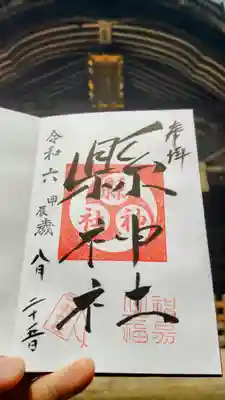 奉拝
縣神社
縣神社
令和六甲辰歳八月二十五日